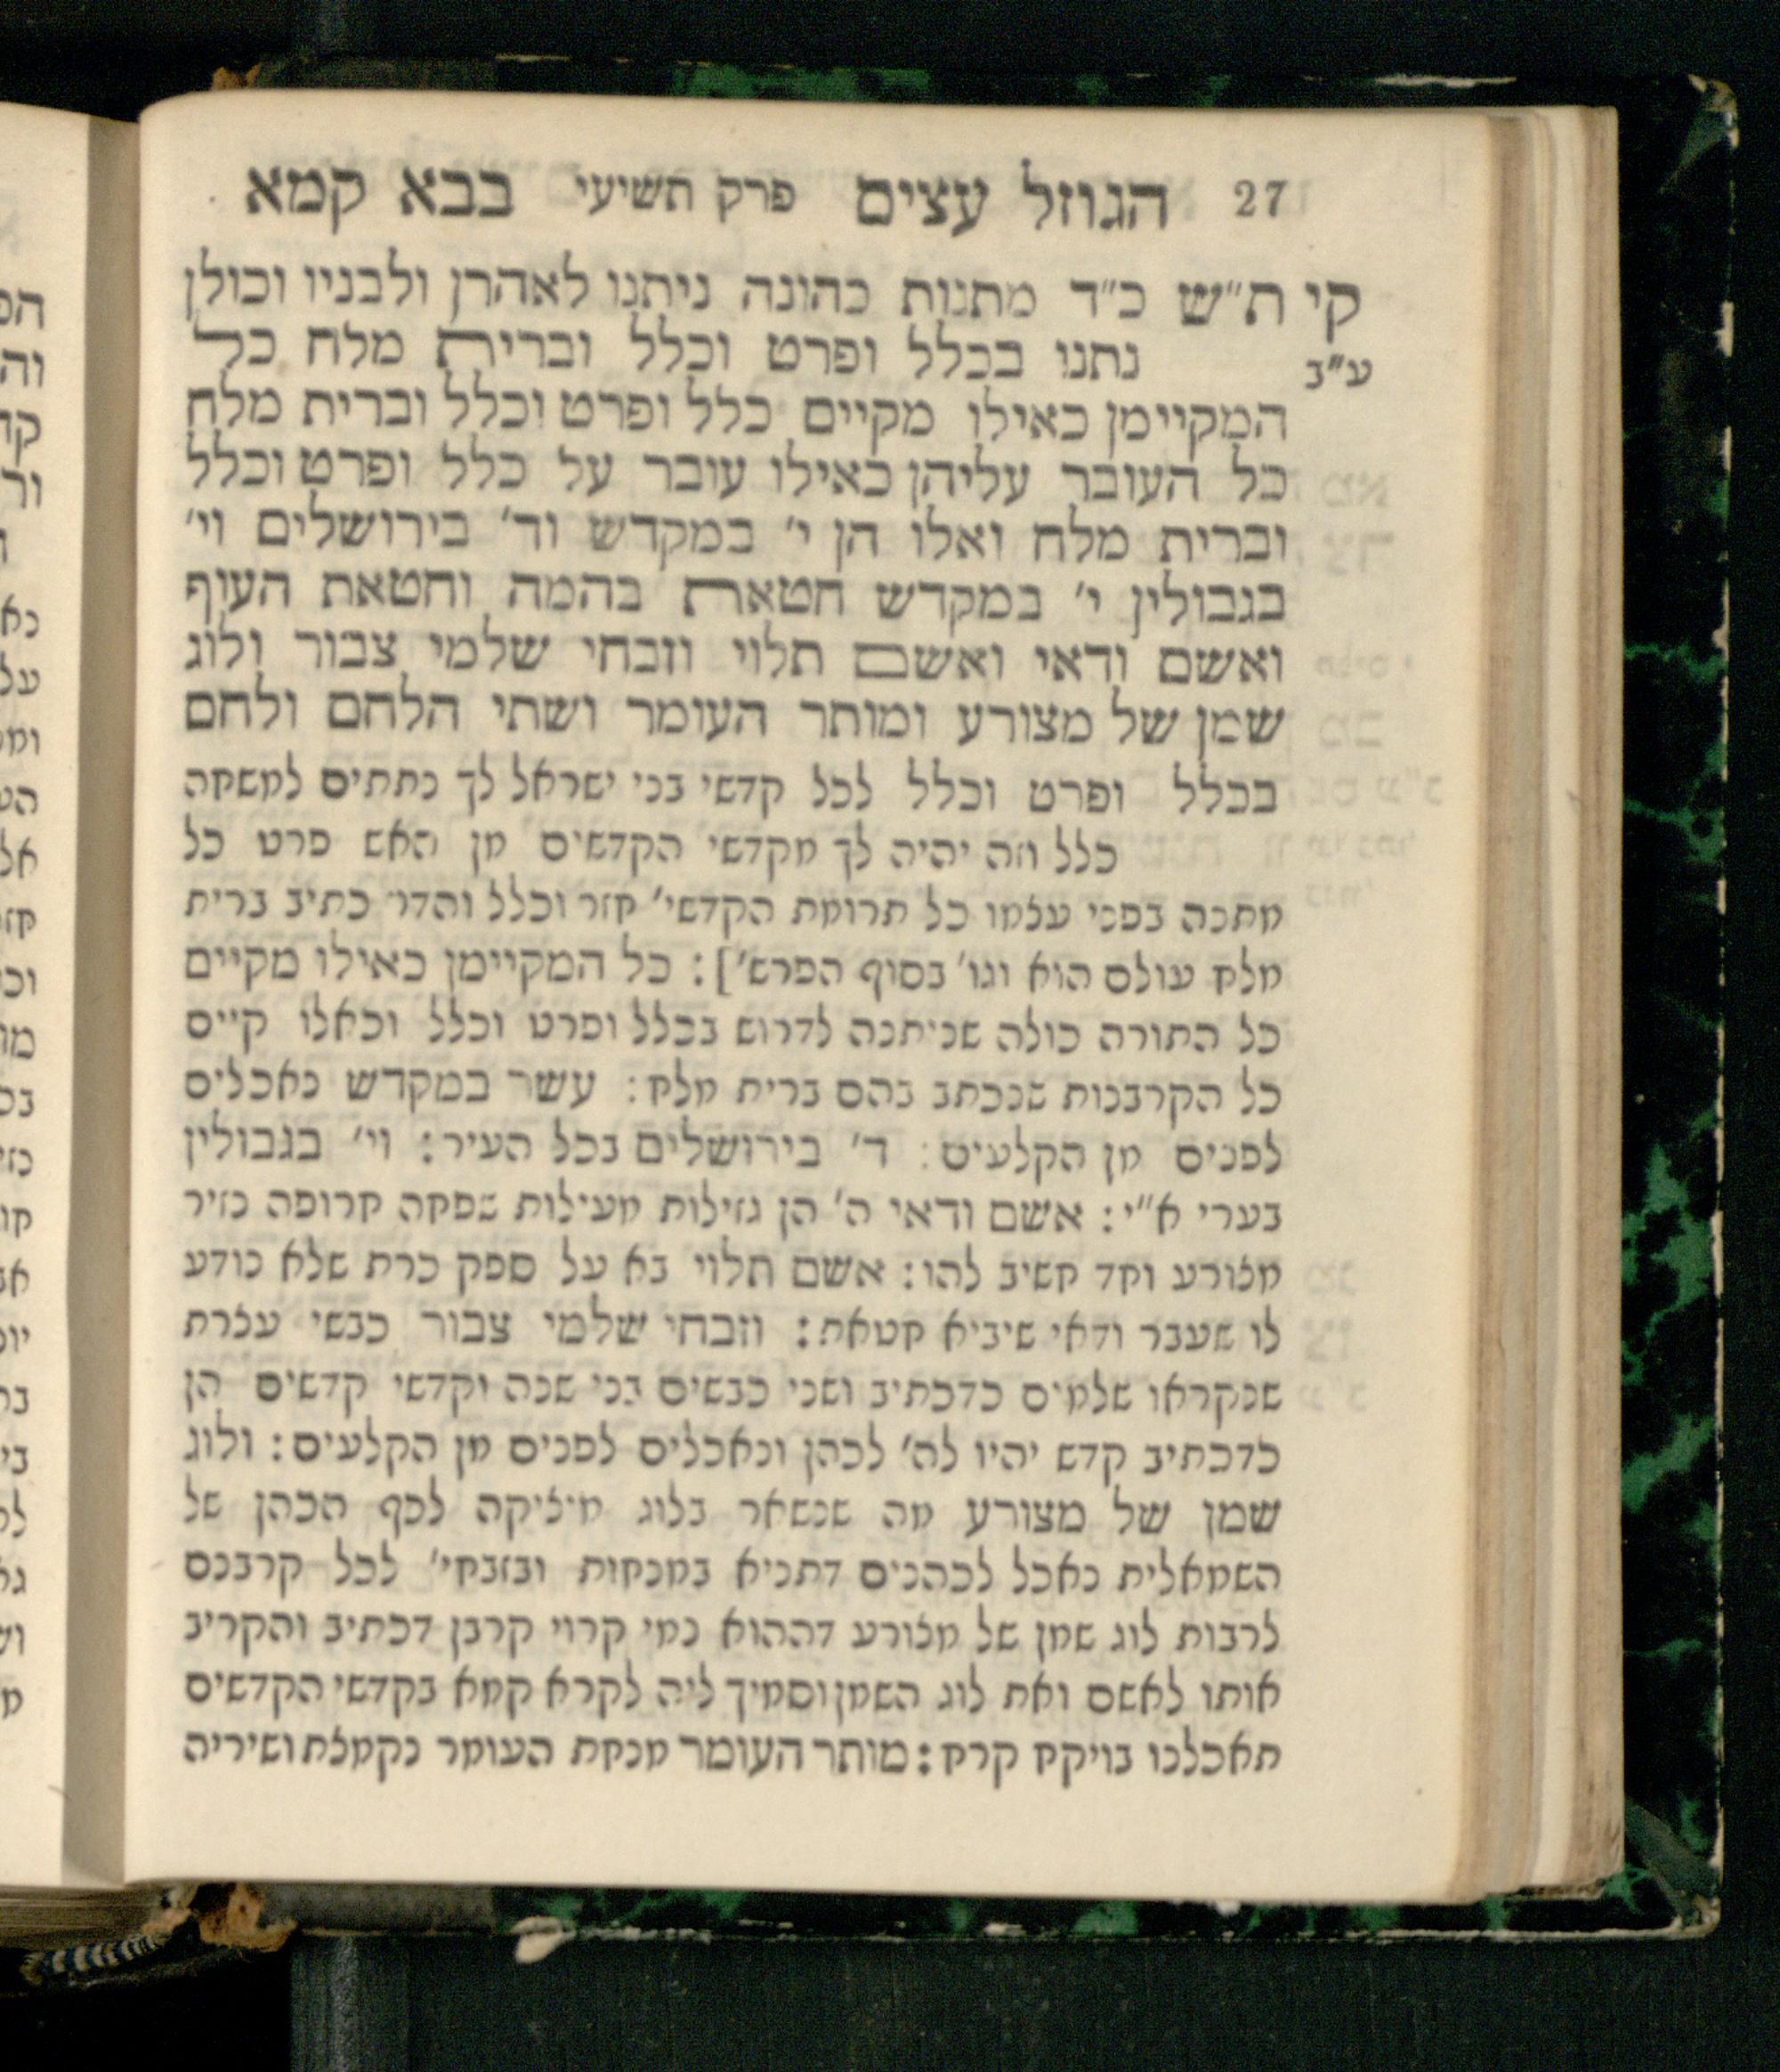 27 הגוזל עצים פרק תשיעי בבא קמא
קי ת״ש כ״ד מתנות כהונה ניתנו לאהרן ולבניו וכולן
ע״ב נתנו בכלל ופרט וכלל וברית מלח כל
המקיימן כאילו מקיים כלל ופרט וכלל וברית מלח
כל העובר עליהן כאילו עובר על כלל ופרט וכלל
וברית מלח ואלו הן י׳ במקדש וד׳ בירושלים וי׳
בגבולין י׳ במקדש חטאת בהמה וחטאת העוף
ואשם ודאי ואשם תלוי וזבחי שלמי צבור ולוג
שמן של מצורע ומותר העומר ושתי הלחם ולחם
בכלל ופרט וכלל לכל קדשי בני ישראל לך נתתים למשחה
כלל וזה יהיה לך מקדשי הקדשים מן האש פרט כל
מתנה בפני עצמו כל תרומת הקדשי׳ חזר וכלל והדר כתיב ברית
מלח עולם הוא וגו׳ בסוף הפרש׳]: כל המקיימן כאילו מקיים
כל התורה כולה שניתנה לדרוש בכלל ופרט וכלל וכאלו קיים
כל הקרבנות שנכתב בהם ברית מלח: עשר במקדש נאכלים
לפנים מן הקלעים: ד׳ בירושלים בכל העיר: וי׳ בגבולין
בערי א״י: אשם ודאי ה׳ הן גזילות מעילות שפחה חרופה נזיר
מצורע וחד חשיב להו: אשם תלוי בא על ספק כרת שלא נודע
לו שעבר ודאי שיביא חטאת: וזבחי שלמי צבור כבשי עצרת
שנקראו שלמים כדכתיב ושני כבשים בני שנה וקדשי קדשים הן
כדכתיב קדש יהיו לה׳ לכהן ונאכלים לפנים מן הקלעים: ולוג
שמן של מצורע מה שנשאר בלוג מיציקה לכף הכהן של
השמאלית נאכל לכהנים דתניא במנחות ובזבחי׳ לכל קרבנם
לרבות לוג שמן של מצורע דההוא נמי קרוי קרבן דכתיב והקריב
אותו לאשם ואת לוג השמן וסמיך ליה לקרא קמא בקדשי הקדשים
תאכלנו בויקח קרח: מותר העומר מנחת העומר נקמצת ושיריה